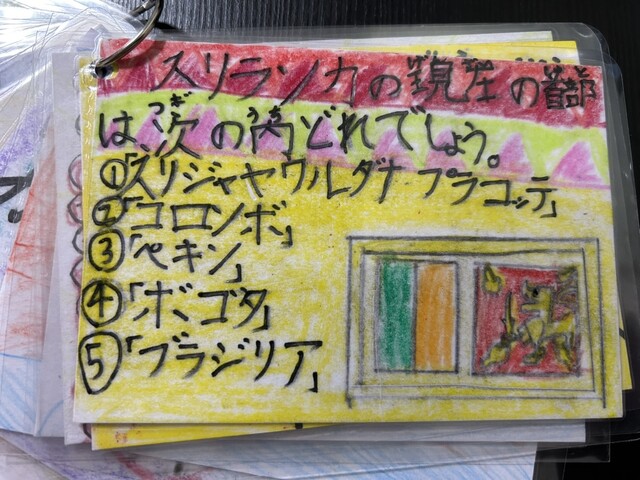 スリランカの現在の首都
は次の内どれでしょう。
①「スリジャヤウルダナプラコッテ」
②「コロンボ」
③「ペキン」
④「ボゴタ」
⑤「ブラジリア」